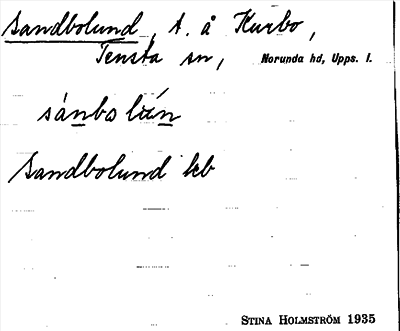 Sandbolund, t. å Kurbo,
Tensta sn, Norunda hd, Upps. l.
Sandbolund
STINA HOLMSTRÖM 1935